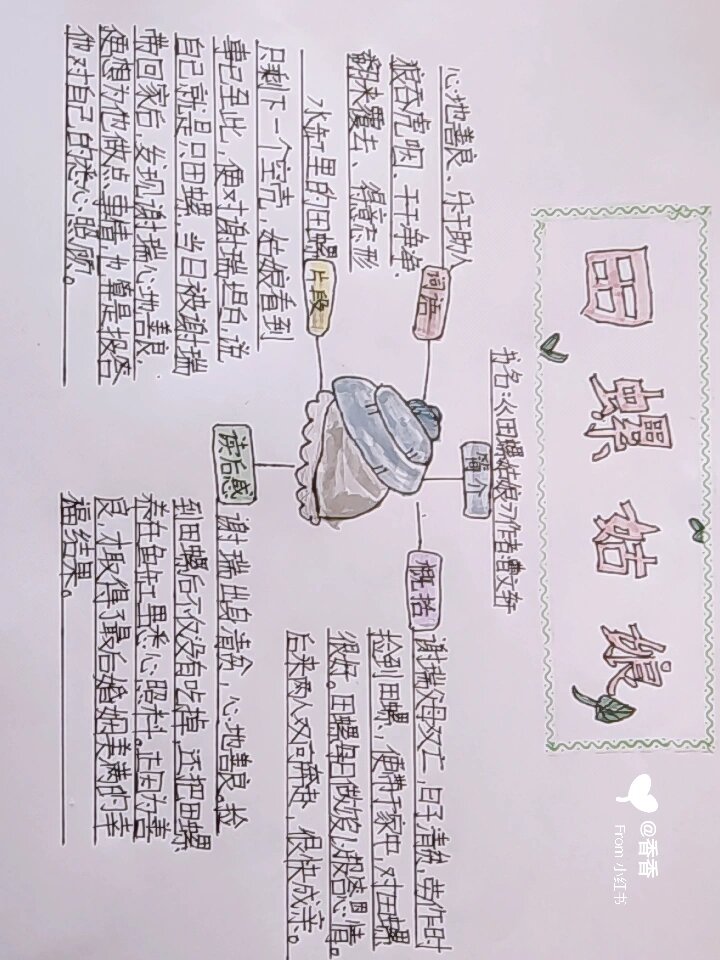 田螺姑娘
简介
书名:《田螺姑娘》作者曹文轩
词语
心地善良、乐于助人
狼吞虎咽、干干净净、
翻来覆去、得意忘形
片段
水缸里的田螺
只剩下一个空壳,姑娘看到
事已至此,便对谢瑞坦白,说
自己就是只田螺,当日被谢瑞
带回家后,发现谢瑞心地善良
便想为他做点事情,也算是报答
他对自己的悉心照顾。
概括
谢瑞父母双亡,日子清贫,劳作时
捡到田螺,便带于家中,对田螺
很好。田螺每日做饭,报答恩情。
后来两人双向奔赴,很快成亲。
读后感
谢瑞出身清贫,心地善良。捡
到田螺后不仅没有吃掉,还把田螺
养在鱼缸里悉心照料。正因为善
良,才取得了最后婚姻美满的幸
福结果。
@香香
From 小红书